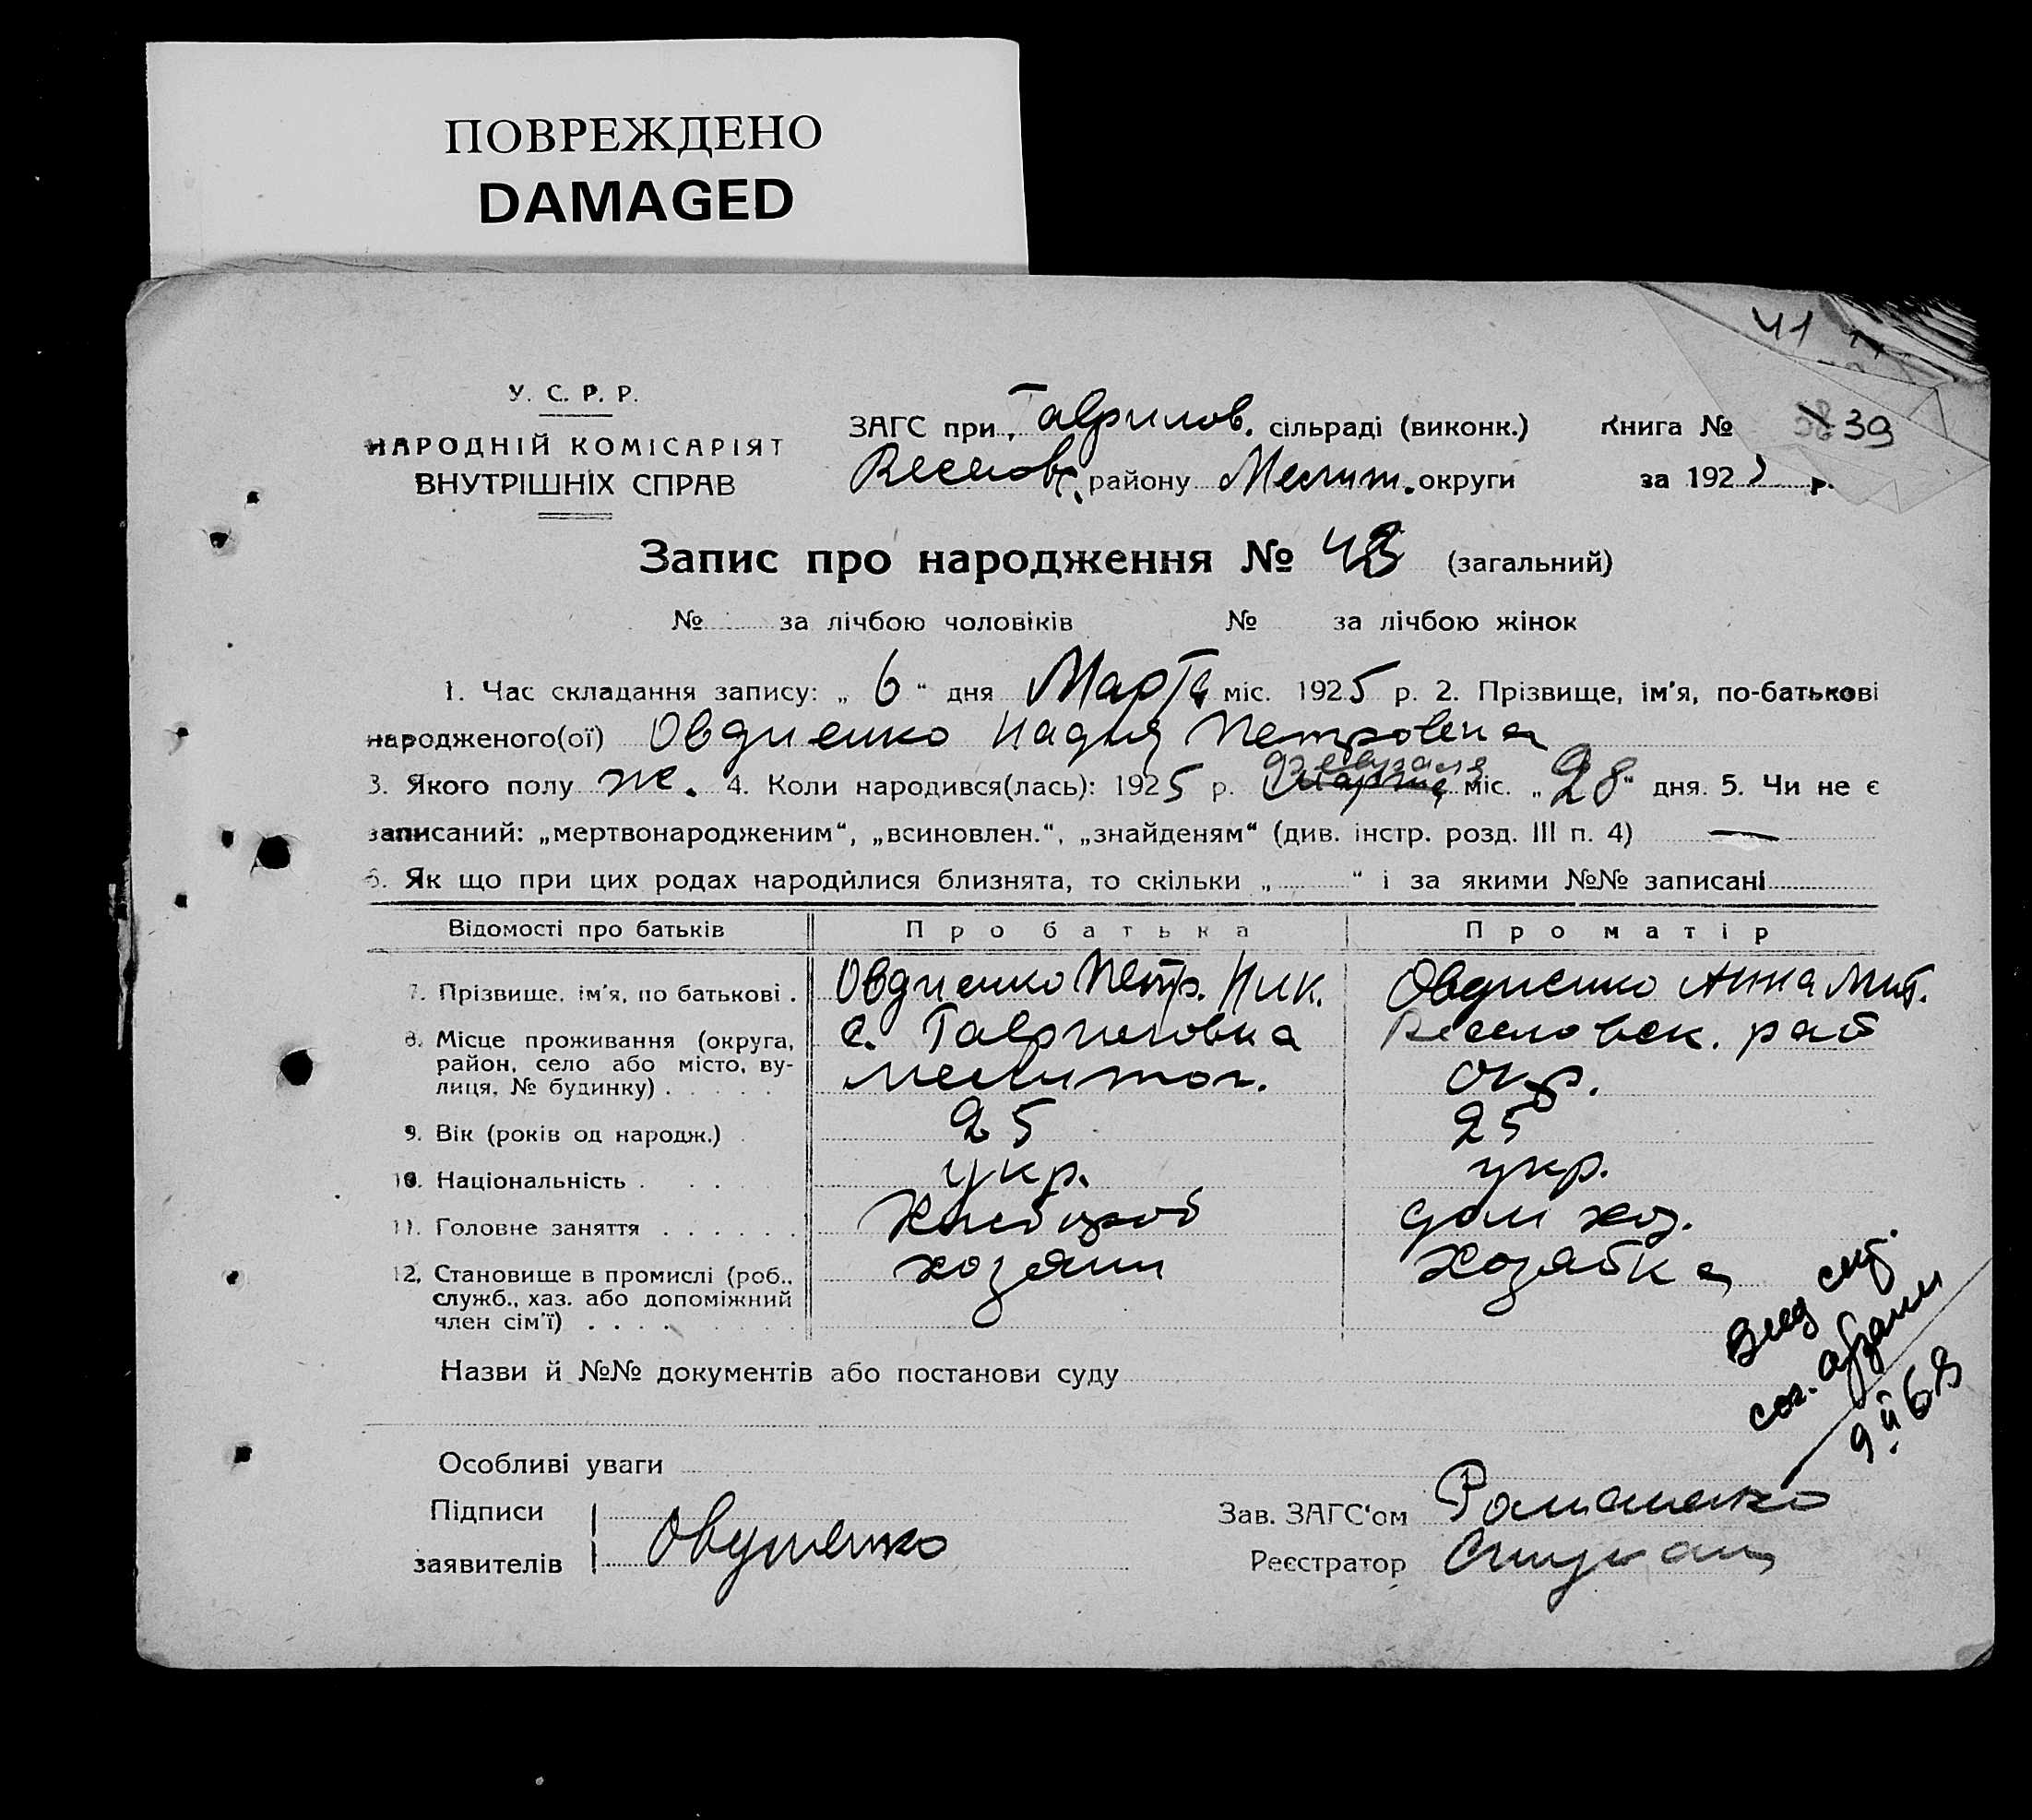 ПОВРЕЖДЕНО
DAMAGED
41
У. С. Р. Р.
НАРОДНІЙ КОМІСАРІЯТ
ВНУТРІШНІХ СПРАВ
ЗАГС при Гаврилов. сільраді (виконк.)
Книга № 39
Веселов. району Мелит. округи
за 192 р.
Запис про народження № 43 (загальний)
№ за лічбою чоловіків № за лічбою жінок
1. Час складання запису: „ 6 “ дня Марта міс. 1925 р. 2. Прізвище, ім'я, по-батькові
народженого(ої) Овдиенко Надия Петровена
Февраля
3. Якого полу ж. 4. Коли народився(лась): 1925 р. Марта міс. „ 28 “ дня. 5. Чи не є
записаний: „мертвонародженим“, „всиновлен.“, „знайденям“ (див. інстр. розд. III п. 4) —
6. Як що при цих родах народилися близнята, то скільки „ “ і за якими №№ записані
Відомості про батьків Про батька Про матір
7. Прізвище, ім'я, по батькові . Овдиенко Петр. Ник. Овдиенко Анна Мит.
8. Місце проживання (округа, район, село або місто, вулиця, № будинку) . . . . . с. Гавриловка Веселовск. рай
Мелитоп. окр.
9. Вік (років од народж.) . 25 25
10. Національність . . . . укр. укр.
11. Головне заняття . . . . . . Хлебороб дом хоз.
12. Становище в промислі (роб., служб., хаз. або допоміжний член сім'ї) . . . . хозяин хозяйка
Назви й №№ документів або постанови суду
Особливі уваги
9 II 68
Підписи
заявителів Овдиенко
Зав. ЗАГС‘ом Романенко
Реєстратор